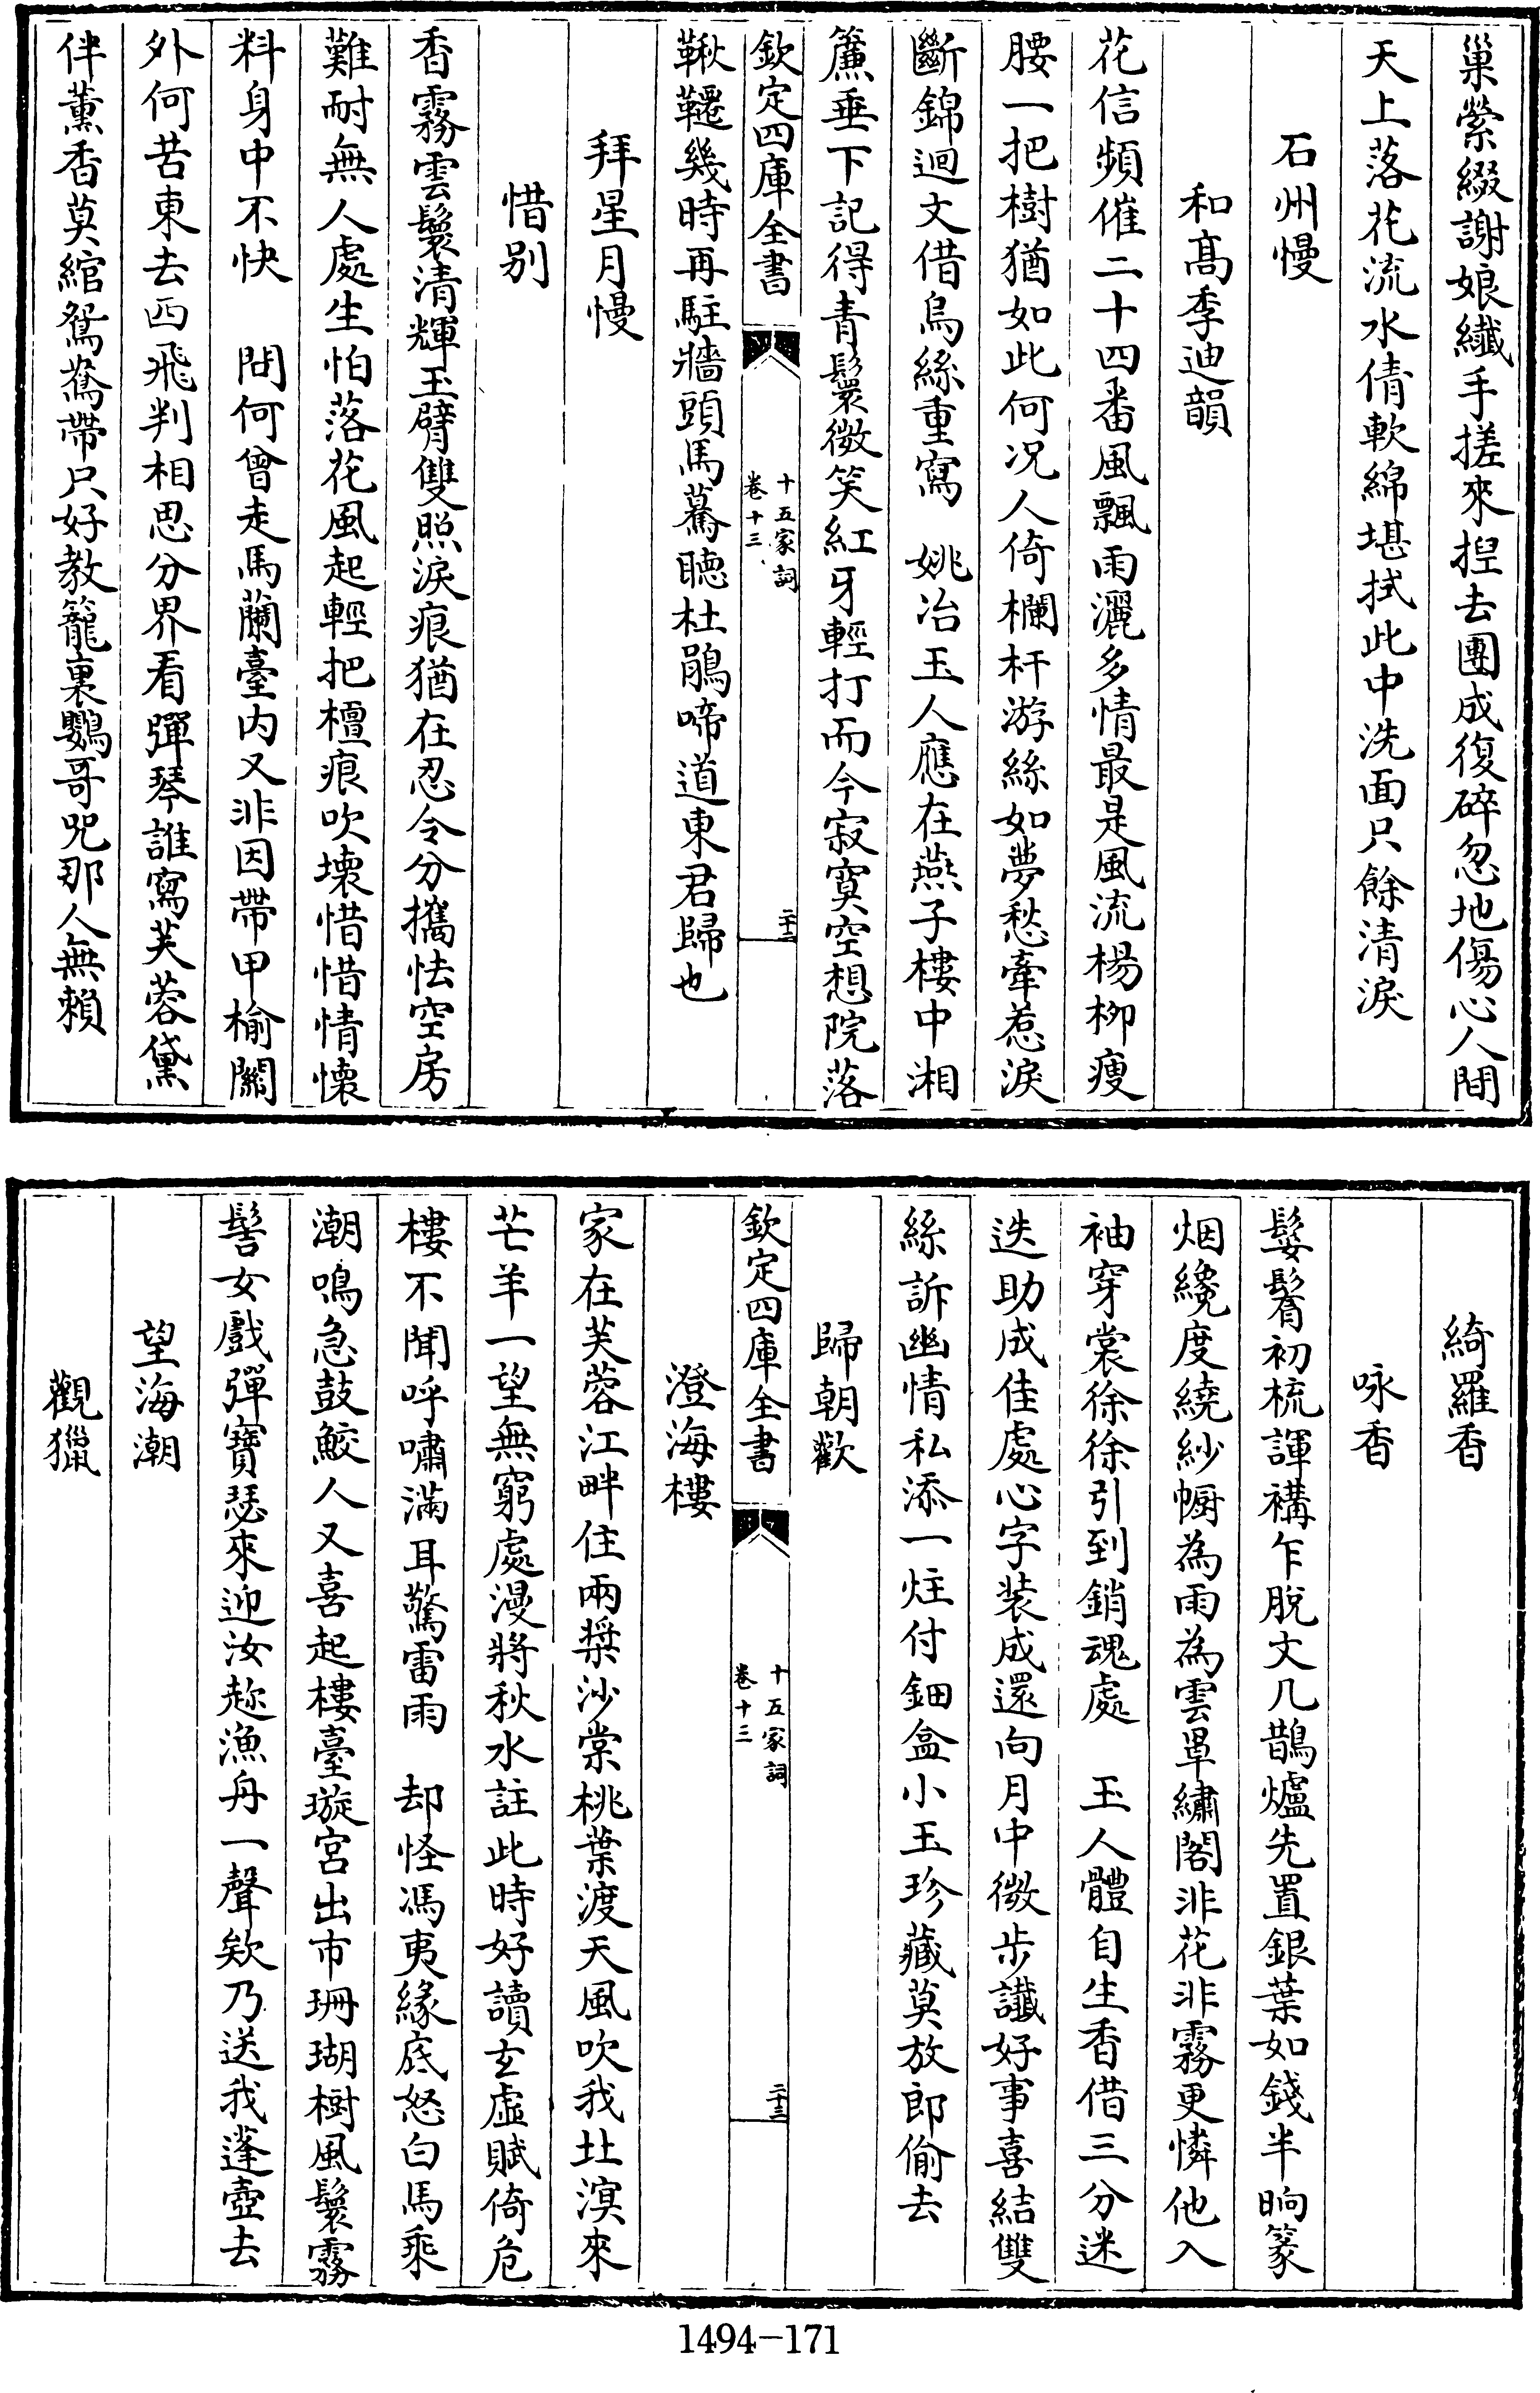 巢縈綴謝娘纖手搓來揑去團成復碎忽地傷心人間
天上落花流水倩軟綿堪拭此中洗面只餘清淚
石州慢
和髙季迪韻
花信頻催二十四番風飄雨灑多情最是風流楊栁瘦
腰一把樹猶如此何况人倚欄杆游絲如夢愁牽惹淚
斷錦迴文借烏絲重寫　姚冶玉人應在燕子樓中湘
簾垂下記得青鬟微笑紅牙輕打而今寂寞空想院落
欽定四庫全書
十五家詞
卷十三
二十二
鞦韆幾時再駐牆頭馬驀聽杜鵑啼道東君歸也
拜星月慢
惜别
香霧雲鬟清輝玉臂雙照淚痕猶在忍令分攜怯空房
難耐無人處生怕落花風起輕把檀痕吹壞惜惜情懷
料身中不快　問何曾走馬蘭臺内又非因帶甲榆關
外何苦東去西飛判相思分界看彈琴誰寫芙蓉黛
伴薰香莫綰鴛鴦帶只好教籠裏鸚哥咒那人無賴
綺羅香
咏香
鬘鬌初梳諢褠乍脱文几鵲爐先置銀葉如錢半晌篆
烟纔度繞紗㡡為雨為雲罩繡閣非花非霧更憐他入
袖穿裳徐徐引到銷魂處　玉人體自生香借三分迷
迭助成佳處心字装成還向月中微步讖好事喜結雙
絲訴幽情私添一炷付鈿盒小玉珍藏莫放郎偷去
歸朝歡
欽定四庫全書
十五家詞
卷十三
二十三
澄海樓
家在芙蓉江畔住兩槳沙棠桃葉渡天風吹我北溟來
芒羊一望無窮處漫將秋水註此時好讀玄虛賦倚危
樓不聞呼嘯滿耳驚雷雨　却怪馮夷緣底怒白馬乘
潮鳴急鼓鮫人又喜起樓臺璇宮出市珊瑚樹風鬟霧
髻女戲彈寶瑟來迎汝趂漁舟一聲欸乃送我蓬壺去
望海潮
觀獵
1494-171